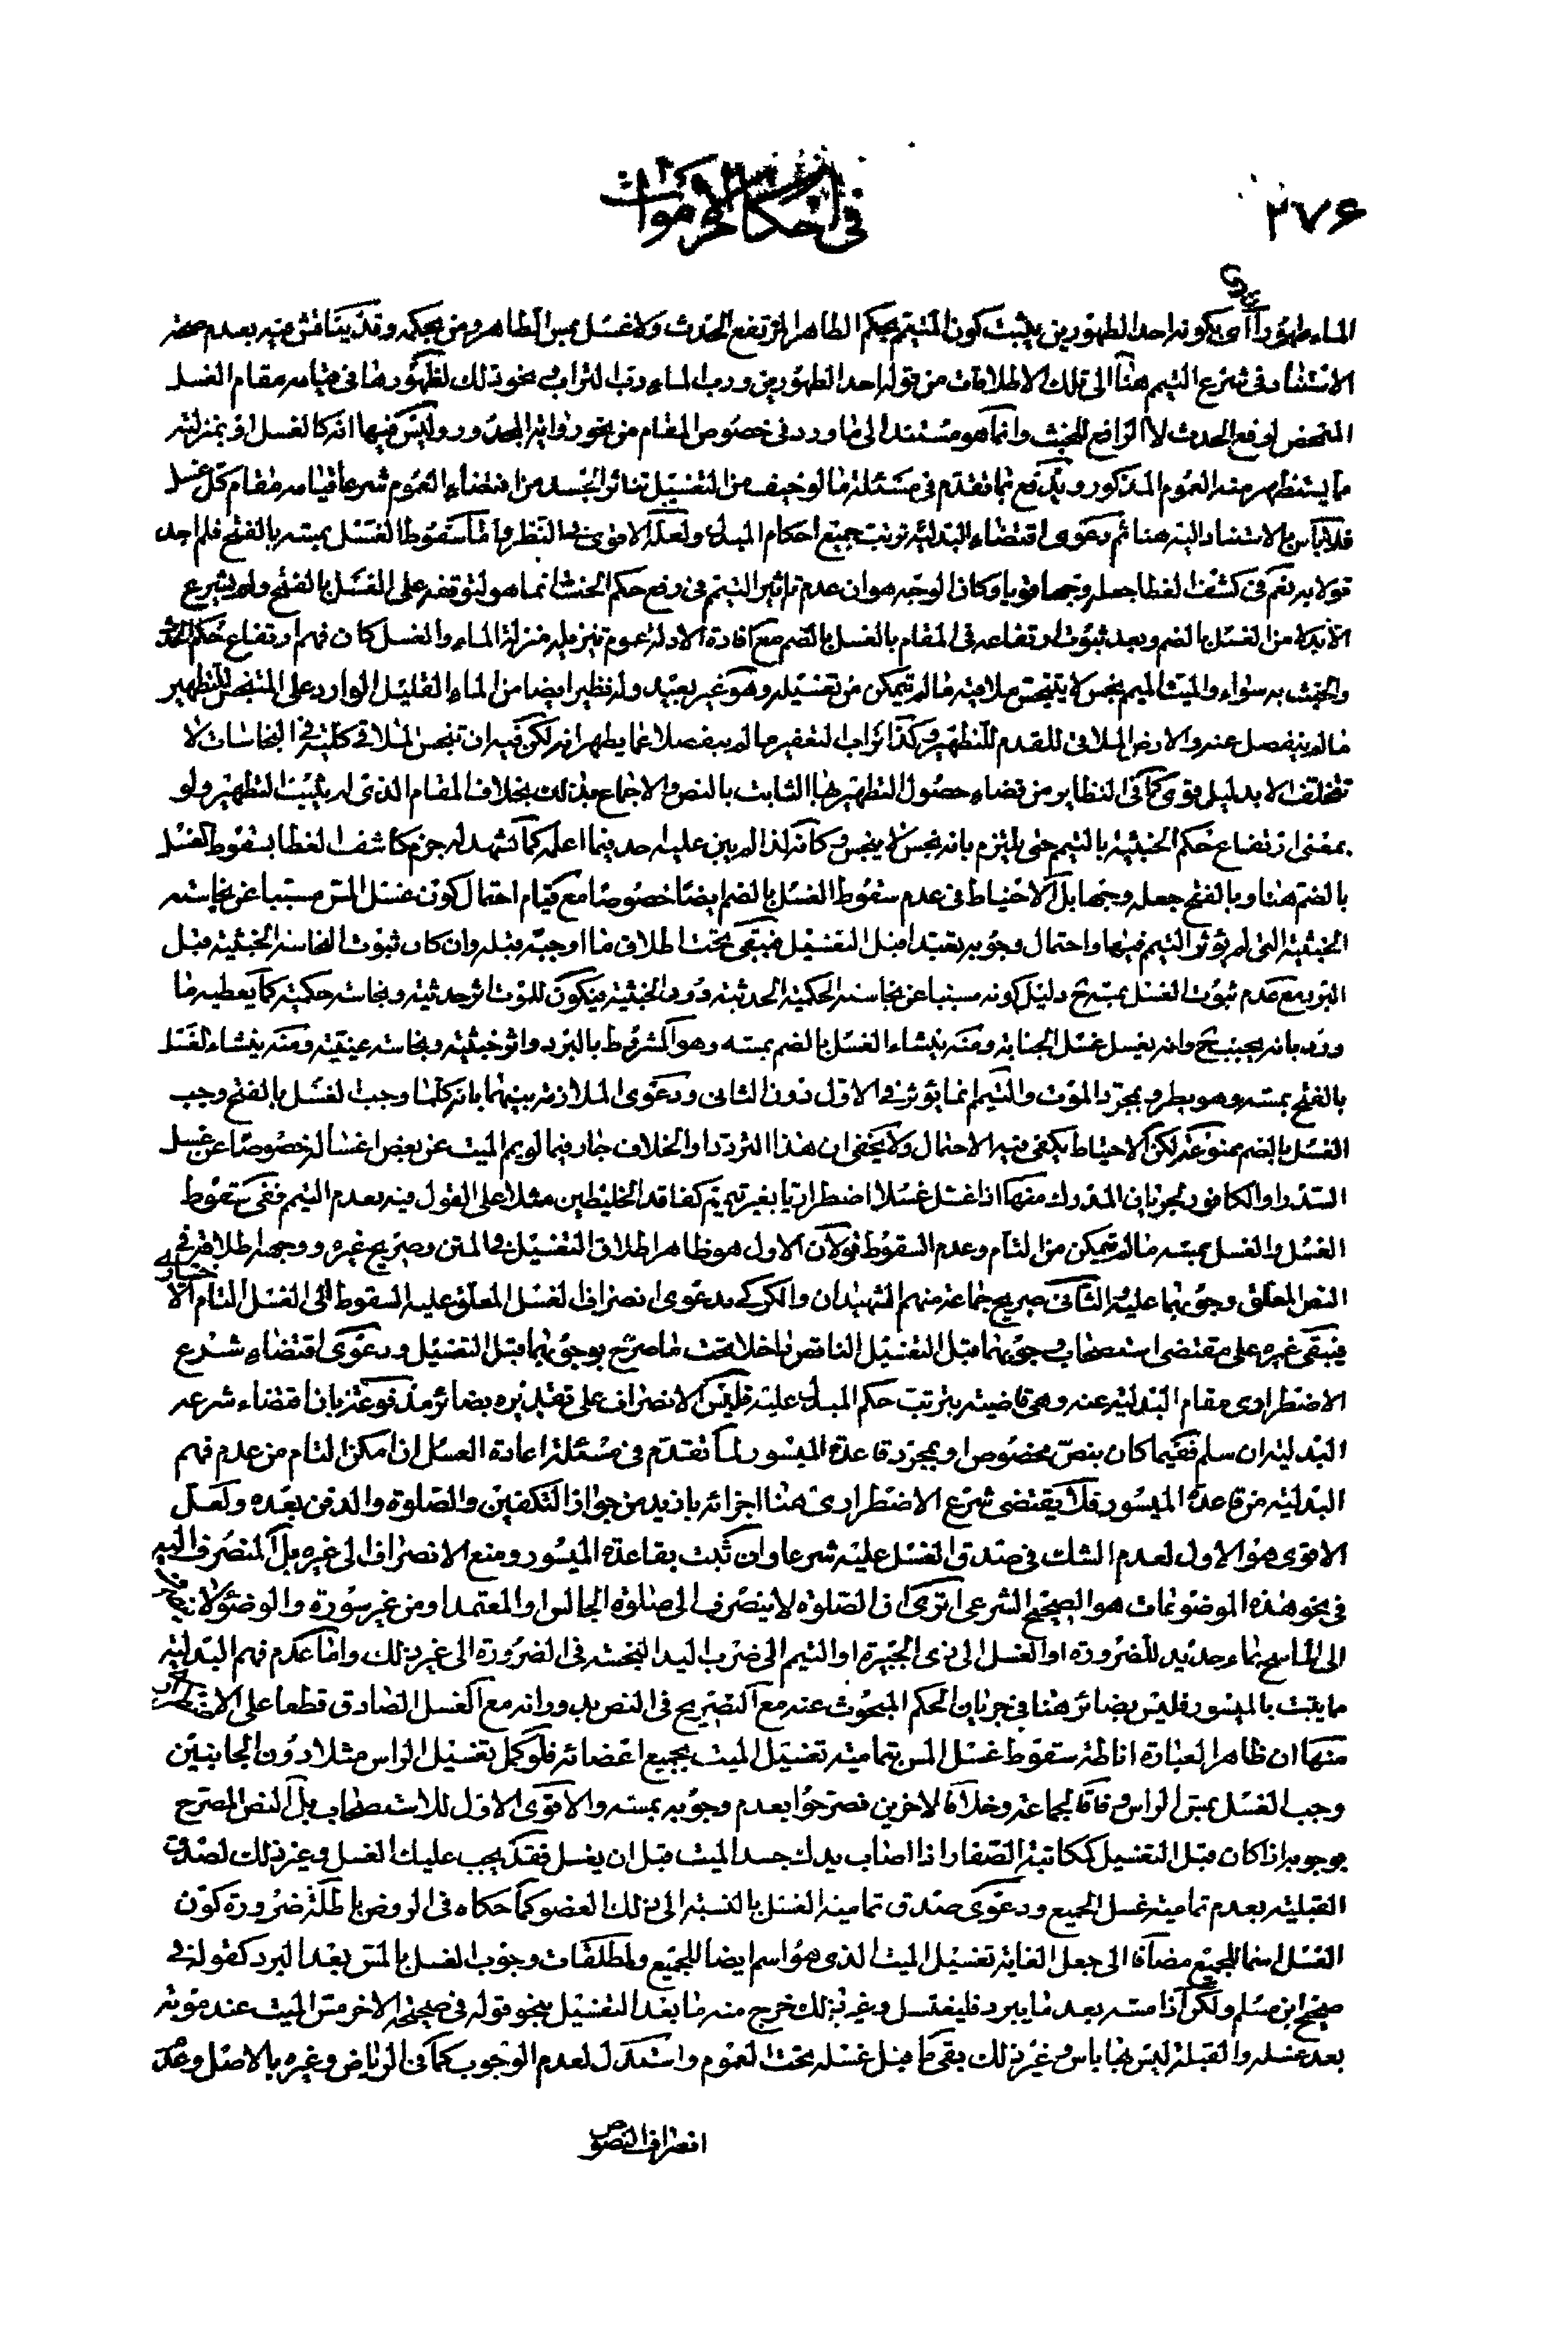 ٢٧۶
في احكام الاموات
الماء طهورا او بكونه احد الطهورين يثبت كون المتيمم بحكم الطاهر المرتفع الحدث ولا غسل بمس الطاهر ومن بحكمه وقد يناقش فيه بعدم
الاستناد في شرع التيمم هنا الى تلك الاطلاقات من قوله احد الطهورين ورب الماء رب التراب ونحو ذلك لظهورها في قيامه مقام الغسل
المتمحض لرفع الحدث لا الرافع للخبث وانما هو مستند الى ما ورد في خصوص المقام من نحو رواية المجدور وليس فيها انه كالغسل او بمنزلته
ما يستظهر منه العموم المذكور ويدفع بما تقدم في مسئلة ما لو خيف من التغسيل تناثر الجسد من اقتضاء العموم شرعا قيامه مقام كل غسل
فلا باس بالاستناد اليه هنا ثم دعوى اقتضاء البدلية ترتب جميع احكام المبدل ولعله الاقوى في النظر واما سقوط الغسل بمسه بالفتح فلم اجد
قولا به نعم في كشف الغطا جعله وجها قويا وكان الوجه هو ان عدم تاثير التيمم في رفع حكم الخبث انما هو لتوقفه على الغسل بالفتح ولم يشرع
الا بدلا من الغسل بالضم وبعد ثبوت ارتفاعه في المقام بالغسل بالضم مع افادة الادلة عموم تنزيله منزلة الماء والغسل كان فهم ارتفاع حكم الحدث
والخبث به سواء والميت الميمم نجس لا يتنجس ملاقيه ما لم يتمكن من تغسيله وهو غير بعيد وله نظير ايضا من الماء القليل الوارد على المتنجس للتطهير
ما لم ينفصل عنه والارض الملاقي للقدم للتطهير وكذا تراب التعفير ما لم ينفصلا عما يطهرانه لكن فيه ان تنجس الملاقي كلية في النجاسات لا
تتخلف الا بدليل قوي كما في النظاير من قضاء حصول التطهير بها الثابت بالنص والاجماع بذلك بخلاف المقام الذي لم يثبت التطهير ولو
بمعنى ارتفاع حكم الخبثية بالتيمم حتى يلتزم بانه نجس لا ينجس وكانه لذا لم يبن عليه احد فيما اعلم كما تشهد له جزم كاشف الغطا بسقوط الغسل
بالضم هنا وبالفتح جعله وجها بل الاحتياط في عدم سقوط الغسل بالضم ايضا خصوصا مع قيام احتمال كون غسل المس مسببا عن نجاسته
الخبثية التي لم يؤثر التيمم فيها واحتمال وجوبه تعبدا قبل التغسيل فيبقى تحت اطلاق ما اوجبه قبله وان كان ثبوت النجاسة الخبثية قبل
البرد مع عدم ثبوت الغسل بمسه ح دليل كونه مسببا عن نجاسته الحكمية الحدثية دون الخبثية فيكون للموت اثر حدثية ونجاسة حكمية كما يعطيه ما
ورد بانه يجنب ح وانه يغسل غسل الجنابة ومنه ينشاء الغسل بالضم بمسه وهو المشروط بالبرد واثر خبثية ونجاسة عينية ومنه ينشاء الغسل
بالفتح بمسه وهو يطرو بمجرد الموت والتيمم انما يؤثر في الاول دون الثاني ودعوى الملازمة بينهما بانه كلما وجب الغسل بالفتح وجب
الغسل بالضم ممنوعة لكن الاحتياط يكفي فيه الاحتمال ولا يخفى ان هذا التردد او الخلاف جار فيما لو يمم الميت عن بعض اغساله خصوصا عن غسل
السدر او الكافور لجريان المدرك منها اذا غسل غسلا اضطراريا بغير تيمم كفاقد الخليطين مثلا على القول فيه بعدم التيمم ففي سقوط
الغسل والغسل بمسه ما لم يتمكن من التام وعدم السقوط قولان الاول هو ظاهر اطلاق التغسيل في المتن وصريح غيره ووجهه اطلاقه في
النص المعلق وجوبهما عليه الثاني صريح جماعة منهم الشهيدان والكركي بدعوى انصراف الغسل المعلق عليه السقوط الى الغسل التام الاختياري
فيبقى غيره على مقتضى استصحاب وجوبهما قبل التغسيل الناقص داخلا تحت ما صرح بوجوبهما قبل التغسيل ودعوى اقتضاء شرع
الاضطراري مقام البدلية عنه وهي قاضية بترتب حكم المبدل عليه فليس الانصراف على تقديره بضائر مدفوعة بان اقتضاء شرعه
البدلية ان سلم ففيما كان بنص مخصوص او بمجرد قاعدة الميسور لما تقدم في مسئلة اعادة الغسل اذا امكن التام من عدم فهم
البدلية من قاعدة الميسور فلا يقتضى شرع الاضطراري هنا اجزائه بازيد من جواز التكفين والصلوة والدفن بعده ولعل
الاقوى هو الاول لعدم الشك في صدق الغسل عليه شرعا وان ثبت بقاعدة الميسور ومنع الانصراف الى غيره بل المنصرف اليه
في نحو هذه الموضوعات هو الصحيح الشرعي اترى ان الصلوة لا ينصرف الى صلوة الجالس او المعتمد او من غير سورة والوضوء لا ينصرف
الى الماسح بماء جديد للضرورة او الغسل الى ذى الجبيرة او التيمم الى ضرب اليد النجسة في الضرورة الى غير ذلك واما عدم فهم البدلية
ما يثبت بالميسور فليس بضائر هنا في جريان الحكم المبحوث عنه مع التصريح في النص بدورانه مع الغسل الصادق قطعا على
منها ان ظاهر العبارة اناطة سقوط غسل المس بتمامية تغسيل الميت بجميع اعضائه فلو كمل تغسيل الراس مثلا دون الجانبين
وجب الغسل بمس الراس وفاقا لجماعة وخلافا لاخرين فصرحوا بعدم وجوبه بمسه والاقوى الاول للاستصحاب بل النص المصرح
بوجوبه اذا كان قبل التغسيل كمكاتبة الصفار اذا اصاب يدك جسد الميت قبل ان يغسل فقد يجب عليك الغسل وغير ذلك لصدق
القبلية بعدم تمامية غسل الجميع ودعوى صدق تمامية الغسل بالنسبة الى ذلك العضو كما حكاه في الروض باطلة ضرورة كون
الغسل اسما للجميع مضافا الى جعل الغاية تغسيل الميت الذي هو اسم ايضا للجميع ولمطلقات وجوب الغسل بالمس بعد البرد كقوله في
صحيح ابن مسلم ولكن اذا مسه بعد ما يبرد فليغتسل وغير ذلك خرج منه ما بعد التغسيل بنحو قوله في صحيحه الاخر مس الميت عند موته
بعد غسله والقبلة ليس بها باس وغير ذلك بقي ما قبل غسله تحت العموم واستدل لعدم الوجوب كما في الرياض وغيره بالاصل وعدم
انصراف النصوص